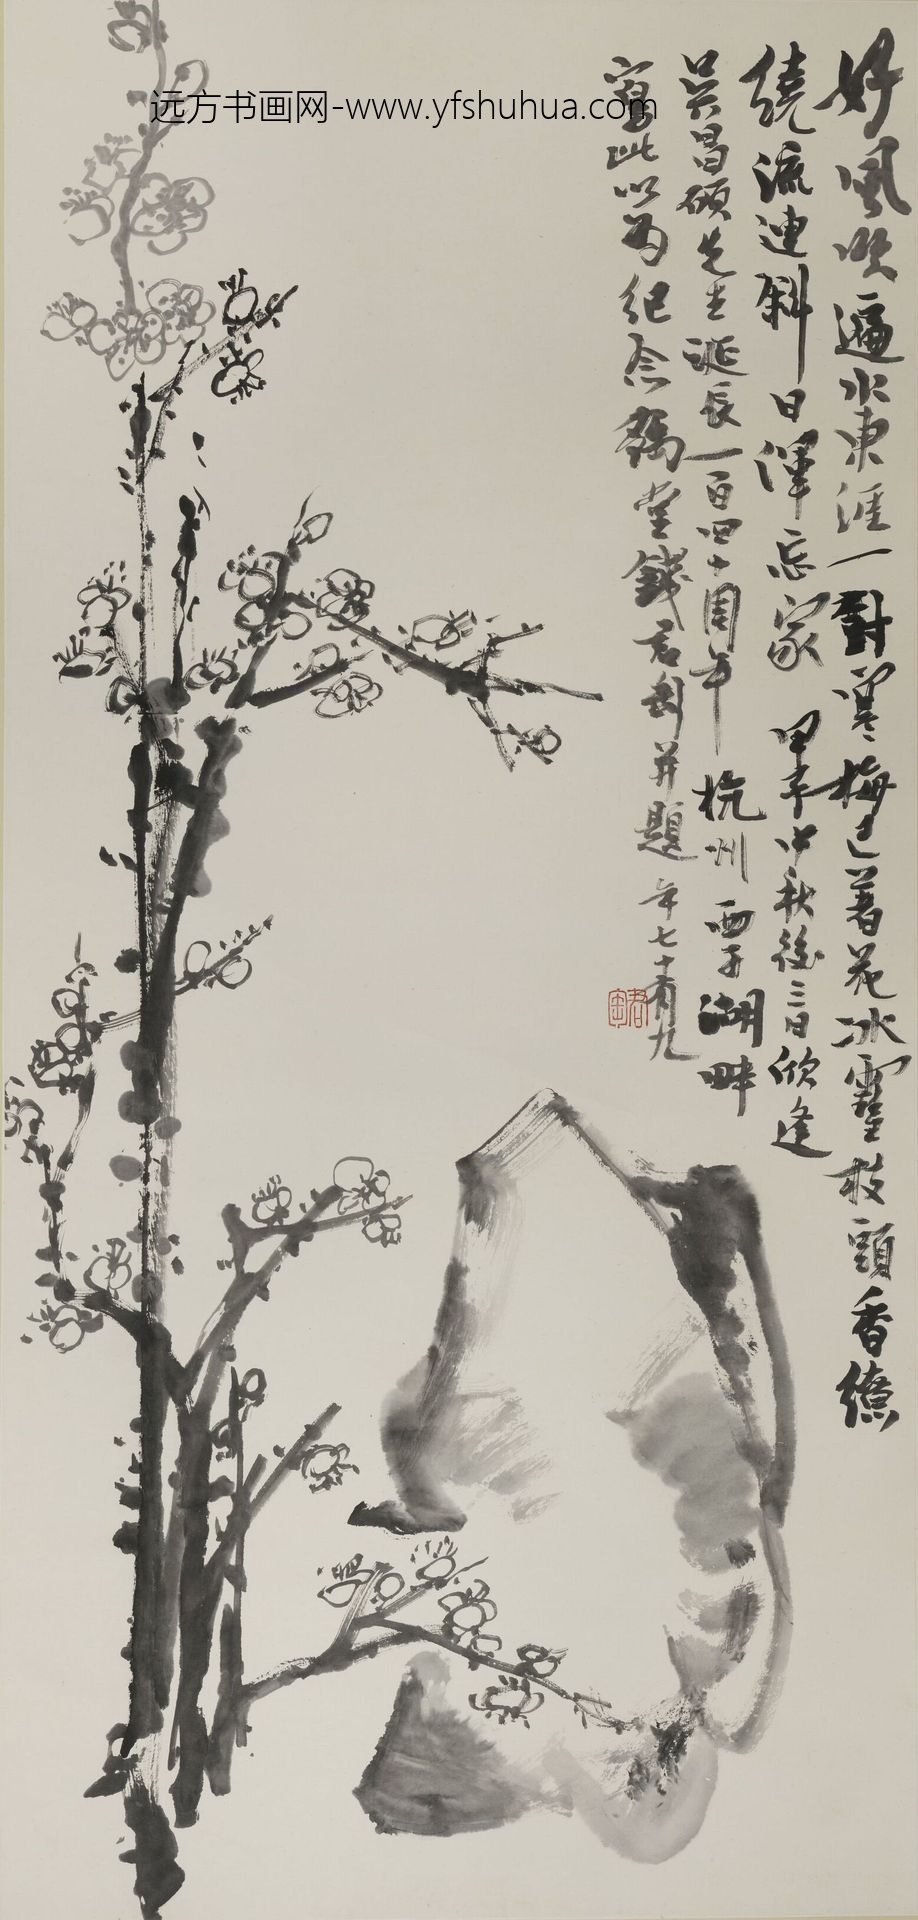 远方书画网-www.yfshuhua.com
好風吹遍水東涯一對寒梅已著花冰雪枝頭香繚
繞流連斜日渾忘家 甲午中秋後三日欣逢
吴昌碩先生誕辰一百四十周年 杭州西子湖畔
寫此以为纪念 鶴堂錢君匋并題 年七十有九
君匋